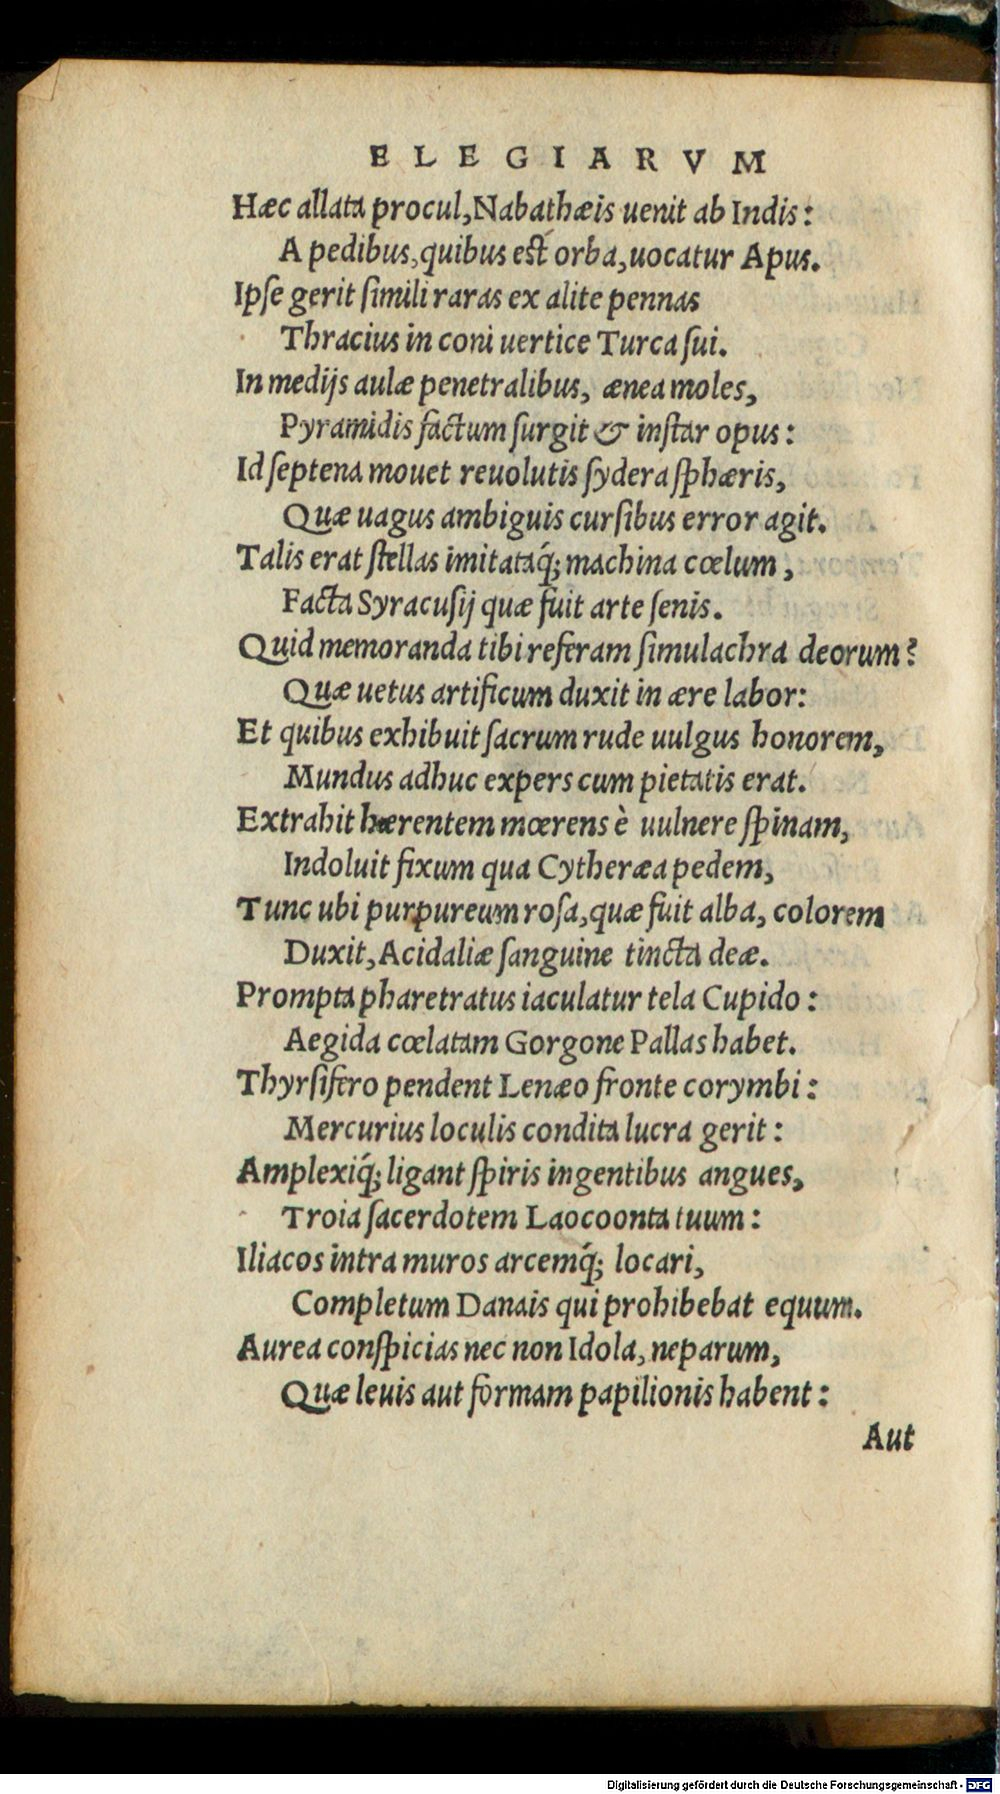 ELEGIARVM
Hæc allata procul, Nabathæis uenit ab Indis:
A pedibus, quibus est orba, uocatur Apus.
Ipſe gerit ſimili raras ex alite pennas
Thracius in coni uertice Turca ſui.
In medijs aulæ penetralibus, ænea moles,
Pyramidis factum ſurgit & inſtar opus:
Id ſeptena mouet reuolutis ſydera ſphæris,
Quæ uagus ambiguis curſibus error agit.
Talis erat ſtellas imitataq́; machina cœlum,
Facta Syracuſij quæ fuit arte ſenis.
Quid memoranda tibi referam ſimulachra deorum?
Quæ uetus artificum duxit in ære labor:
Et quibus exhibuit ſacrum rude uulgus honorem,
Mundus adhuc expers cum pietatis erat.
Extrahit hærentem mœrens è uulnere ſpinam,
Indoluit fixum qua Cytheræa pedem,
Tunc ubi purpureum roſa, quæ fuit alba, colorem
Duxit, Acidaliæ ſanguine tincta deæ.
Prompta pharetratus iaculatur tela Cupido:
Aegida cœlatam Gorgone Pallas habet.
Thyrſifero pendent Lenæo fronte corymbi:
Mercurius loculis condita lucra gerit:
Amplexiq́; ligant ſpiris ingentibus angues,
Troia ſacerdotem Laocoonta tuum:
Iliacos intra muros arcemq́; locari,
Completum Danais qui prohibebat equum.
Aurea conſpicias nec non Idola, neparum,
Quæ leuis aut formam papilionis habent:
Aut
Digitalisierung gefördert durch die Deutsche Forschungsgemeinschaft - DFG